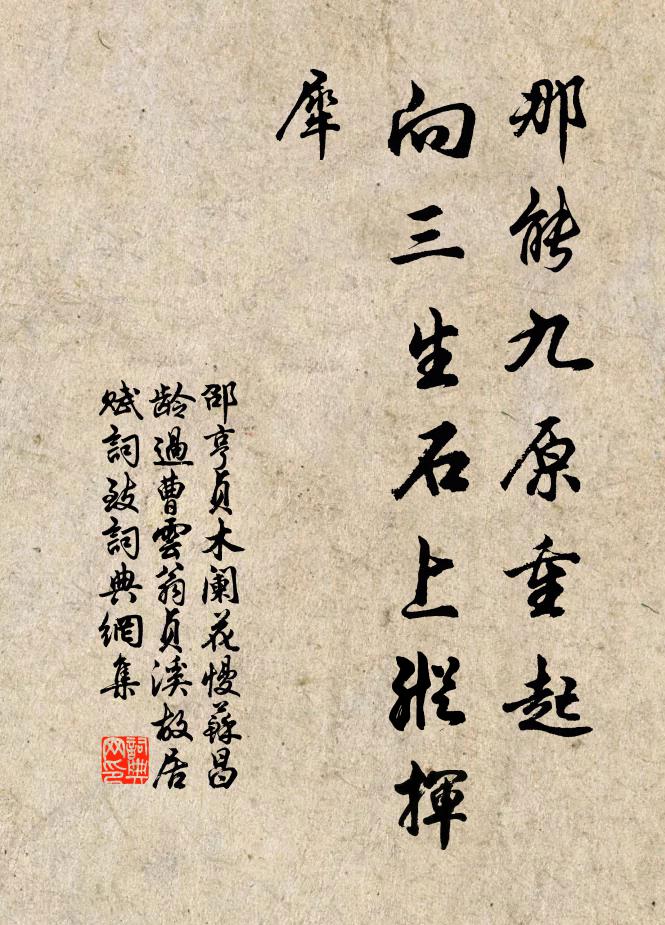 那能九原重起
向三生石上縱揮
犀
邵亨貞木闌花慢蘇昌
龄過曹雲翁貞溪故居
賦詞致詞典網集
詞典網印